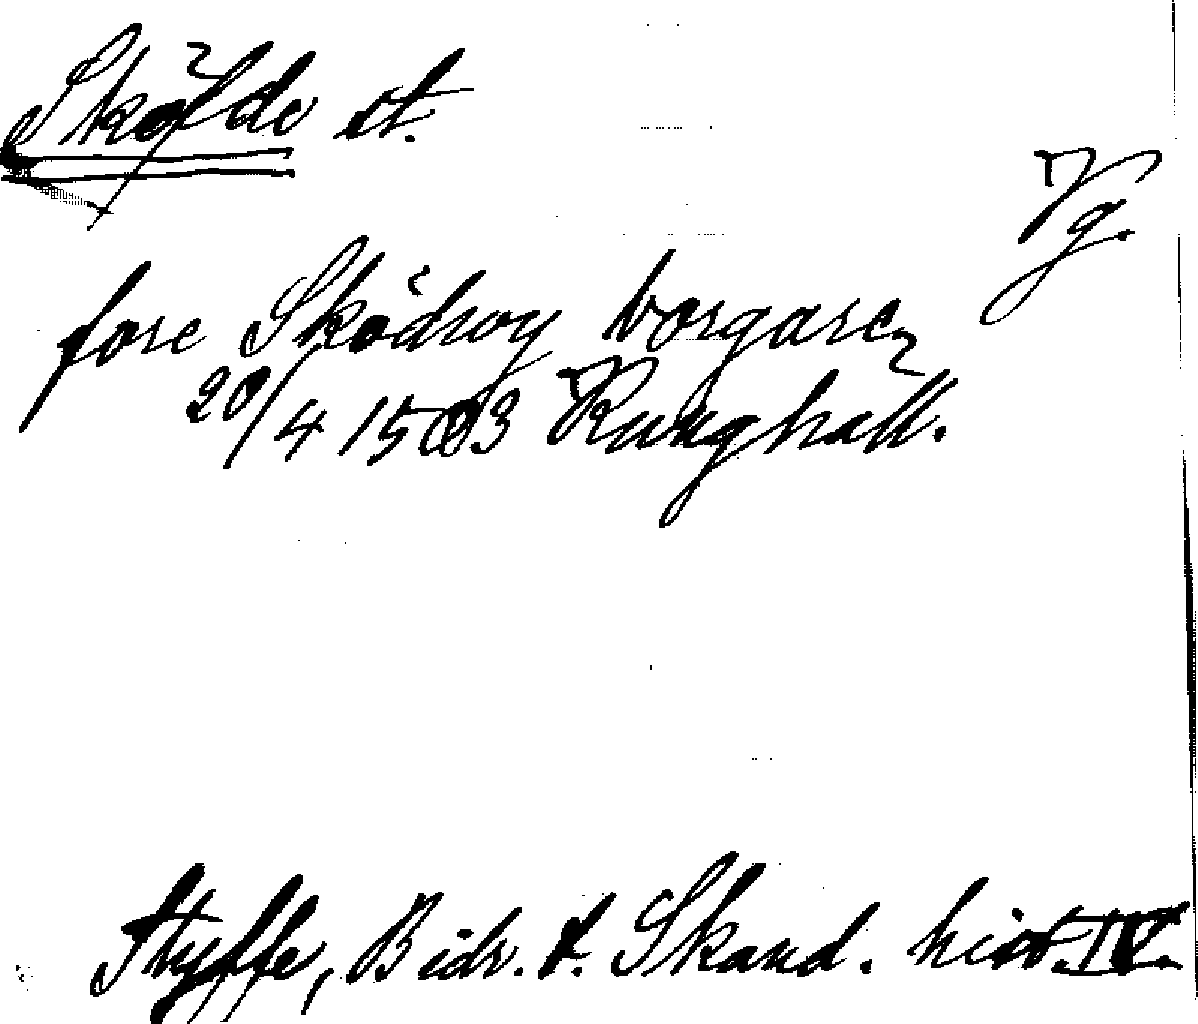 Skölde st.
Vg.
fore Sködwy borgare
20/4 1503 Kunghäll.
Styffe, Bidr. t. Skand. hist. IV.